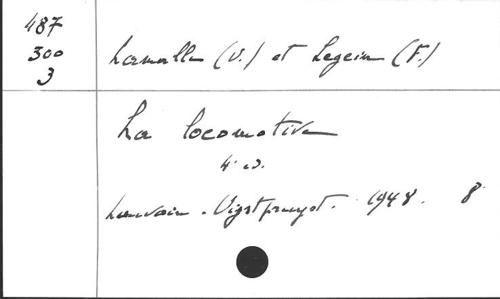 487
300
3
Lamalle (U.) et Legein (F.)
La locomotive
4e éd.
Louvain. Uystpruyst. 1948. 8